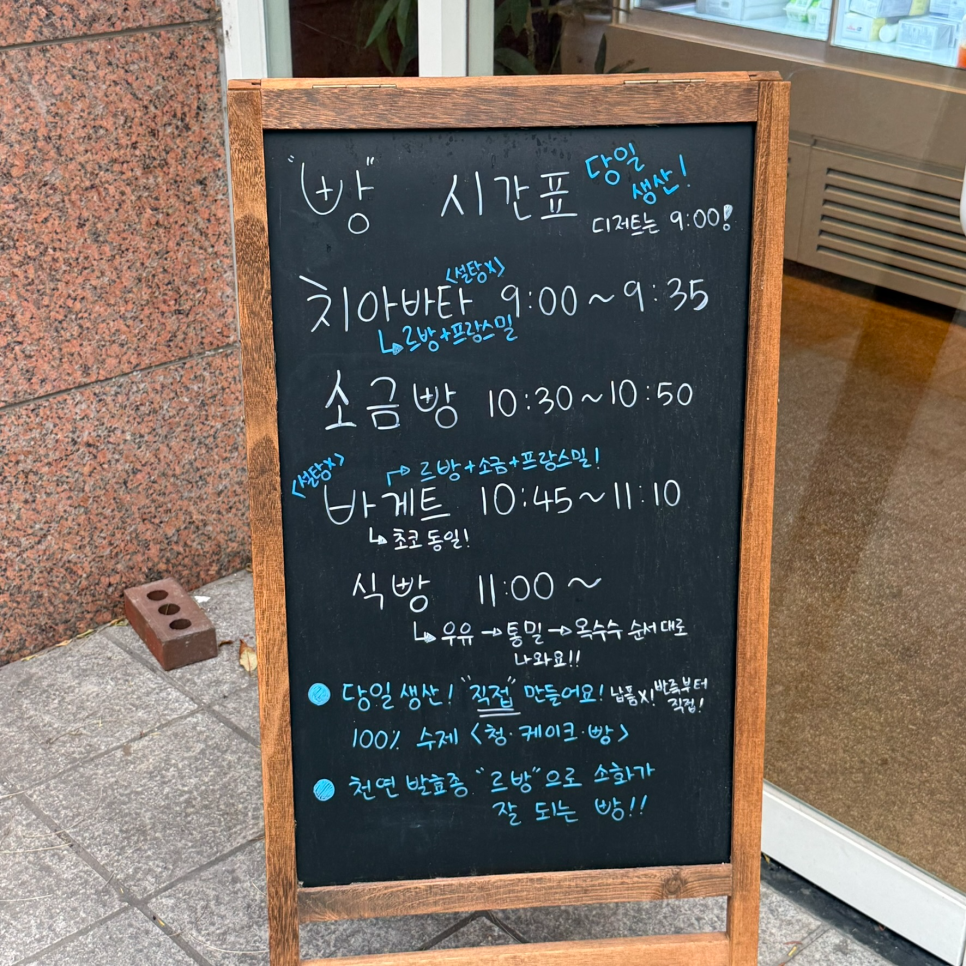 "빵" 시간표 당일
생산!
디저트는 9:00!
<설탕X>
치아바타 9:00~9:35
↳르방+프랑스밀
소금빵 10:30~10:50
<설탕X> 르방+소금+프랑스밀!
바게트 10:45~11:10
↳초코 동일!
식빵 11:00~
↳우유→통밀→옥수수 순서대로
나와요!!
당일 생산! "직접" 만들어요! 납품X! 반죽부터
직접!
100% 수제 <청·케이크·빵>
천연 발효종 "르방"으로 소화가
잘 되는 빵!!